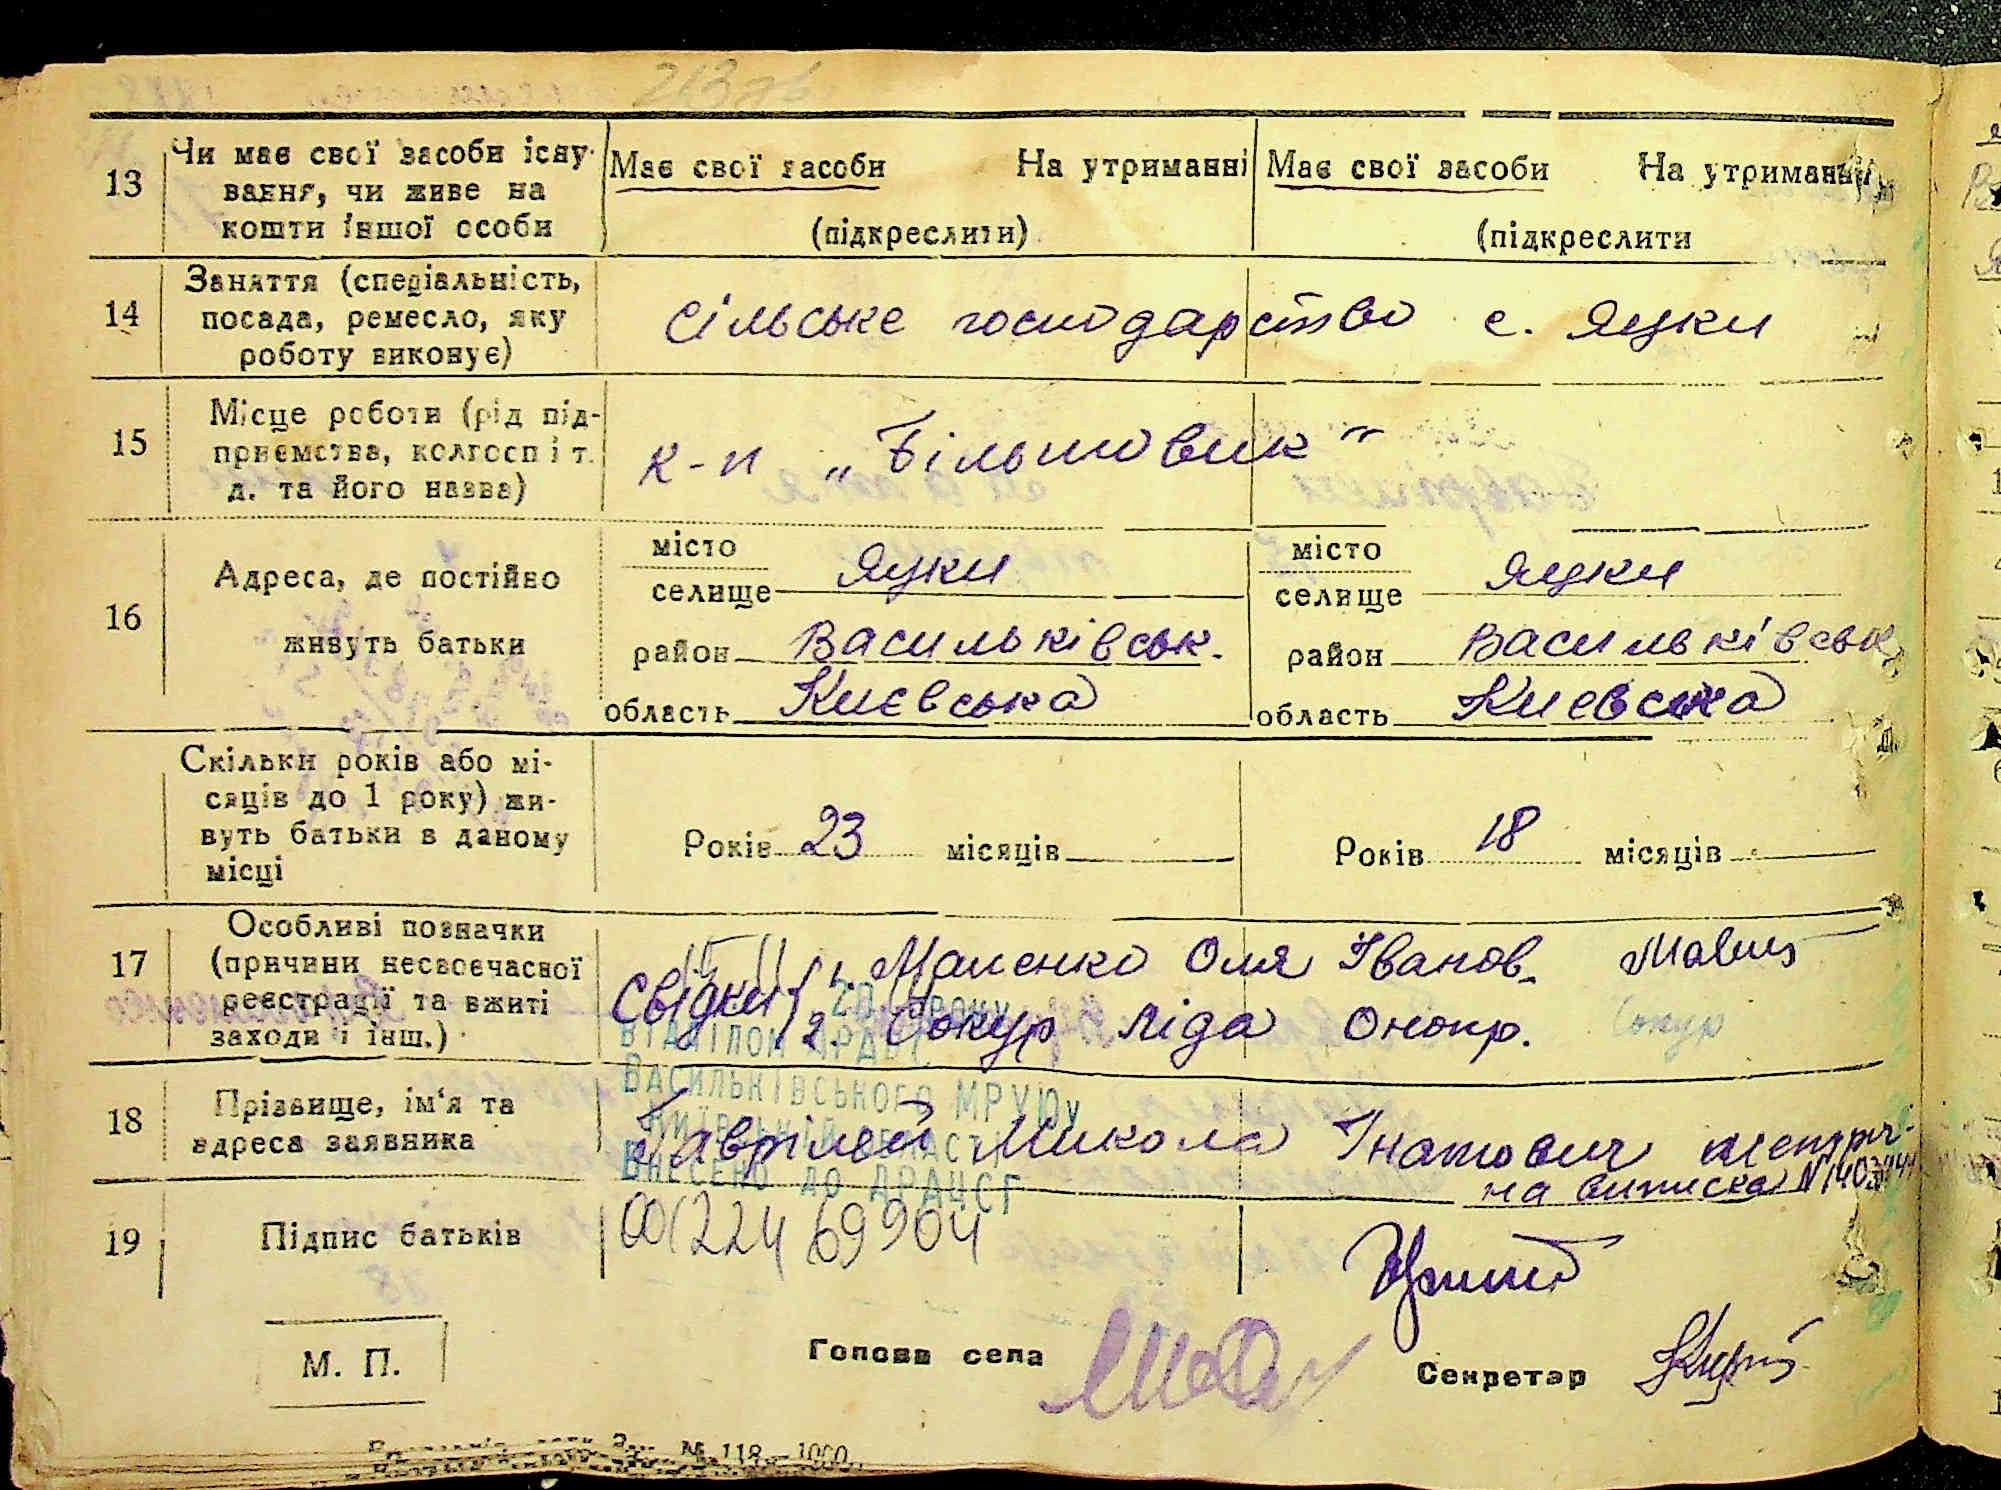 213 зв
13
Чи має свої засоби існу-
вання, чи живе на
кошти іншої особи
Має свої засоби На утриманні
(підкреслити)
Має свої засоби На утриманні
(підкреслити
14
Заняття (спеціальність,
посада, ремесло, яку
роботу виконує)
сільське господарство с. Яцки
15
Місце роботи (рід під-
приємства, колгосп і т.
д. та його назва)
к-п „Більшовик"
16
Адреса, де постійно
живуть батьки
місто
селище Яцки
район Васильківськ.
область Києвська
місто
селище Яцки
район Васильківськ
область Киевська
Скільки років або мі-
сяців до 1 року) жи-
вуть батьки в даному
місці
Років 23 місяців
Років 18 місяців
17
Особливі позначки
(причини несвоєчасної
реєстрації та вжиті
заходи і інш.)
Свідки 1. Маленко Оля Іванов.
2. Сокур Ліда Онопр. Сокур
РОКУ
ВІДДІЛОМ ДРАЦС
ВАСИЛЬКІВСЬКОГО МРУЮ
КИЇВСЬКОЇ ОБЛАСТІ
ВНЕСЕНО ДО ДРАЦСГ
18
Прізвище, ім'я та
адреса заявника
Гаврілей Микола Ігнатович
на виписка N
19
Підпис батьків
00122469904
М. П.
Голова села
Секретар
М 118—1000